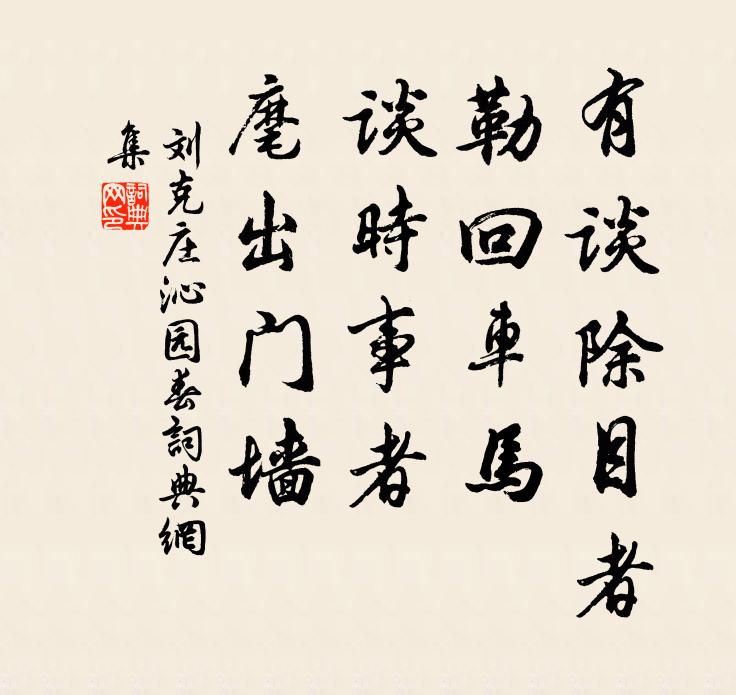 有谈除目者
勒回車馬
谈時事者
麾出门墙
刘克庄沁园春詞典網
集
詞典网印